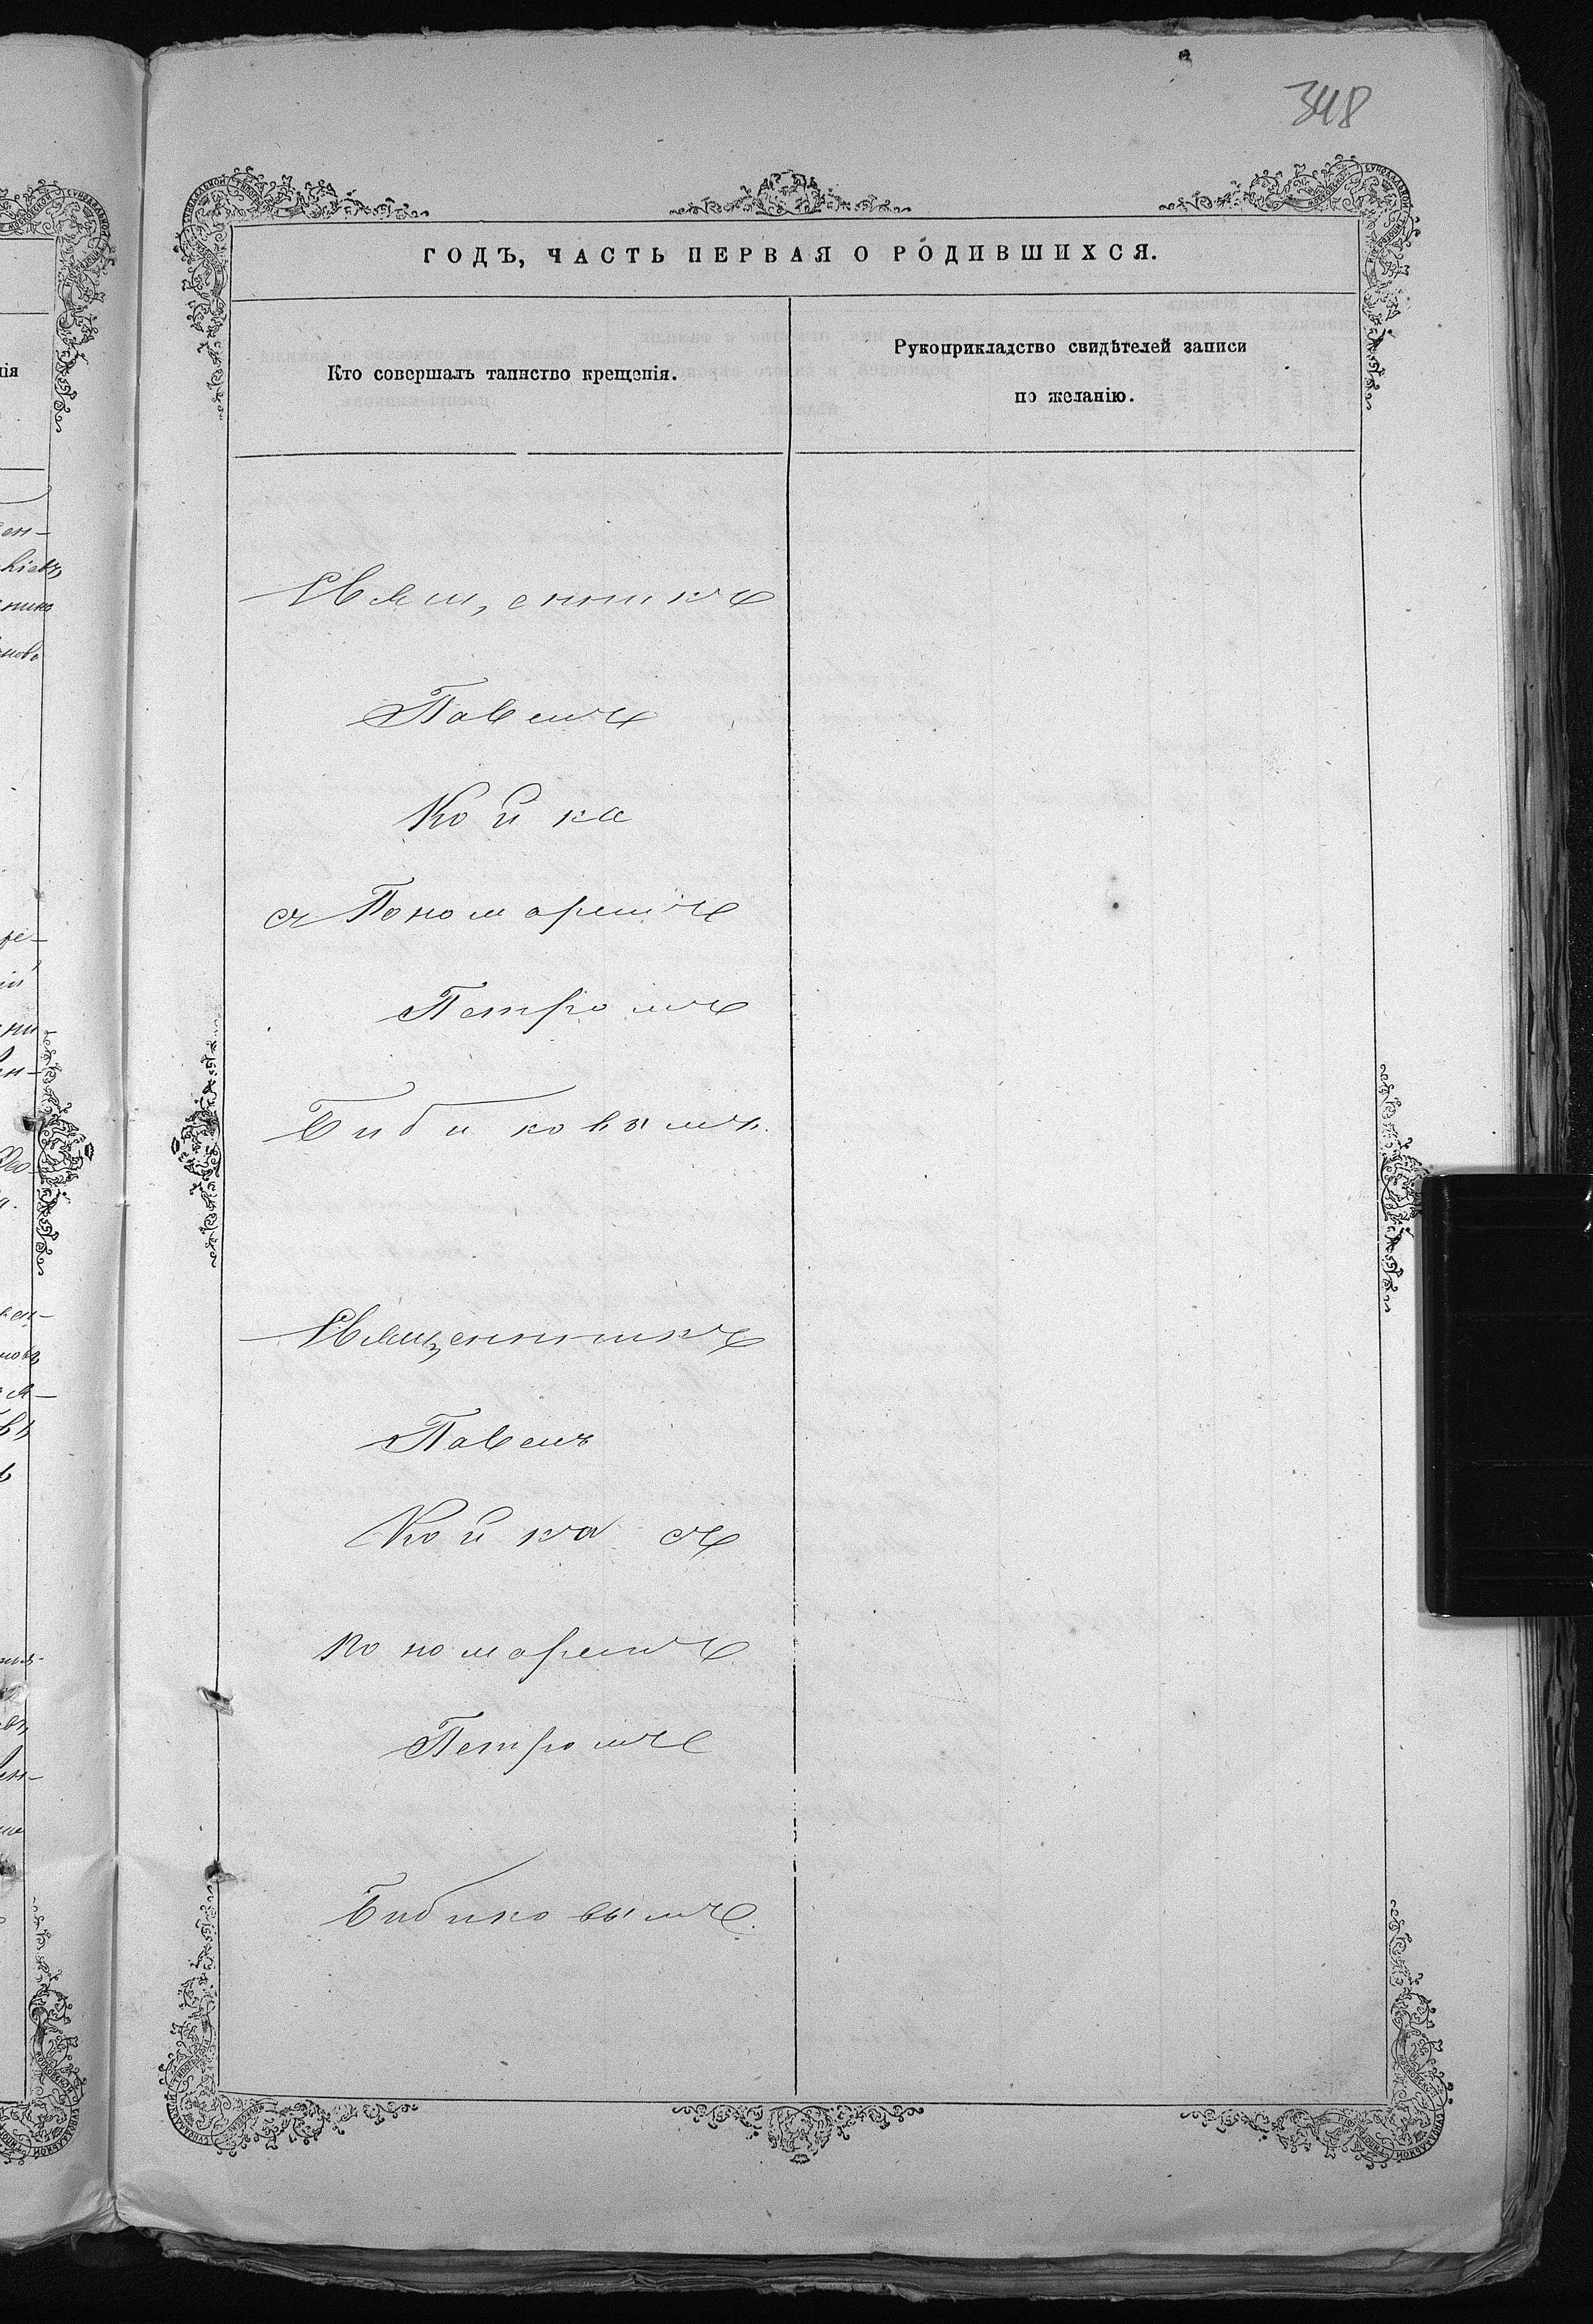 348
ГОДЪ, ЧАСТЬ ПЕРВАЯ О РОДИВШИХСЯ.
Кто совершалъ таинство крещенія.
Рукоприкладство свидѣтелей записи
по желанію.
Священникъ
Павелъ
Койка
съ Пономаремъ
Петромъ
Бибиковымъ.
Священникъ
Павелъ
Койка съ
пономаремъ
Петромъ
Бибиковымъ.